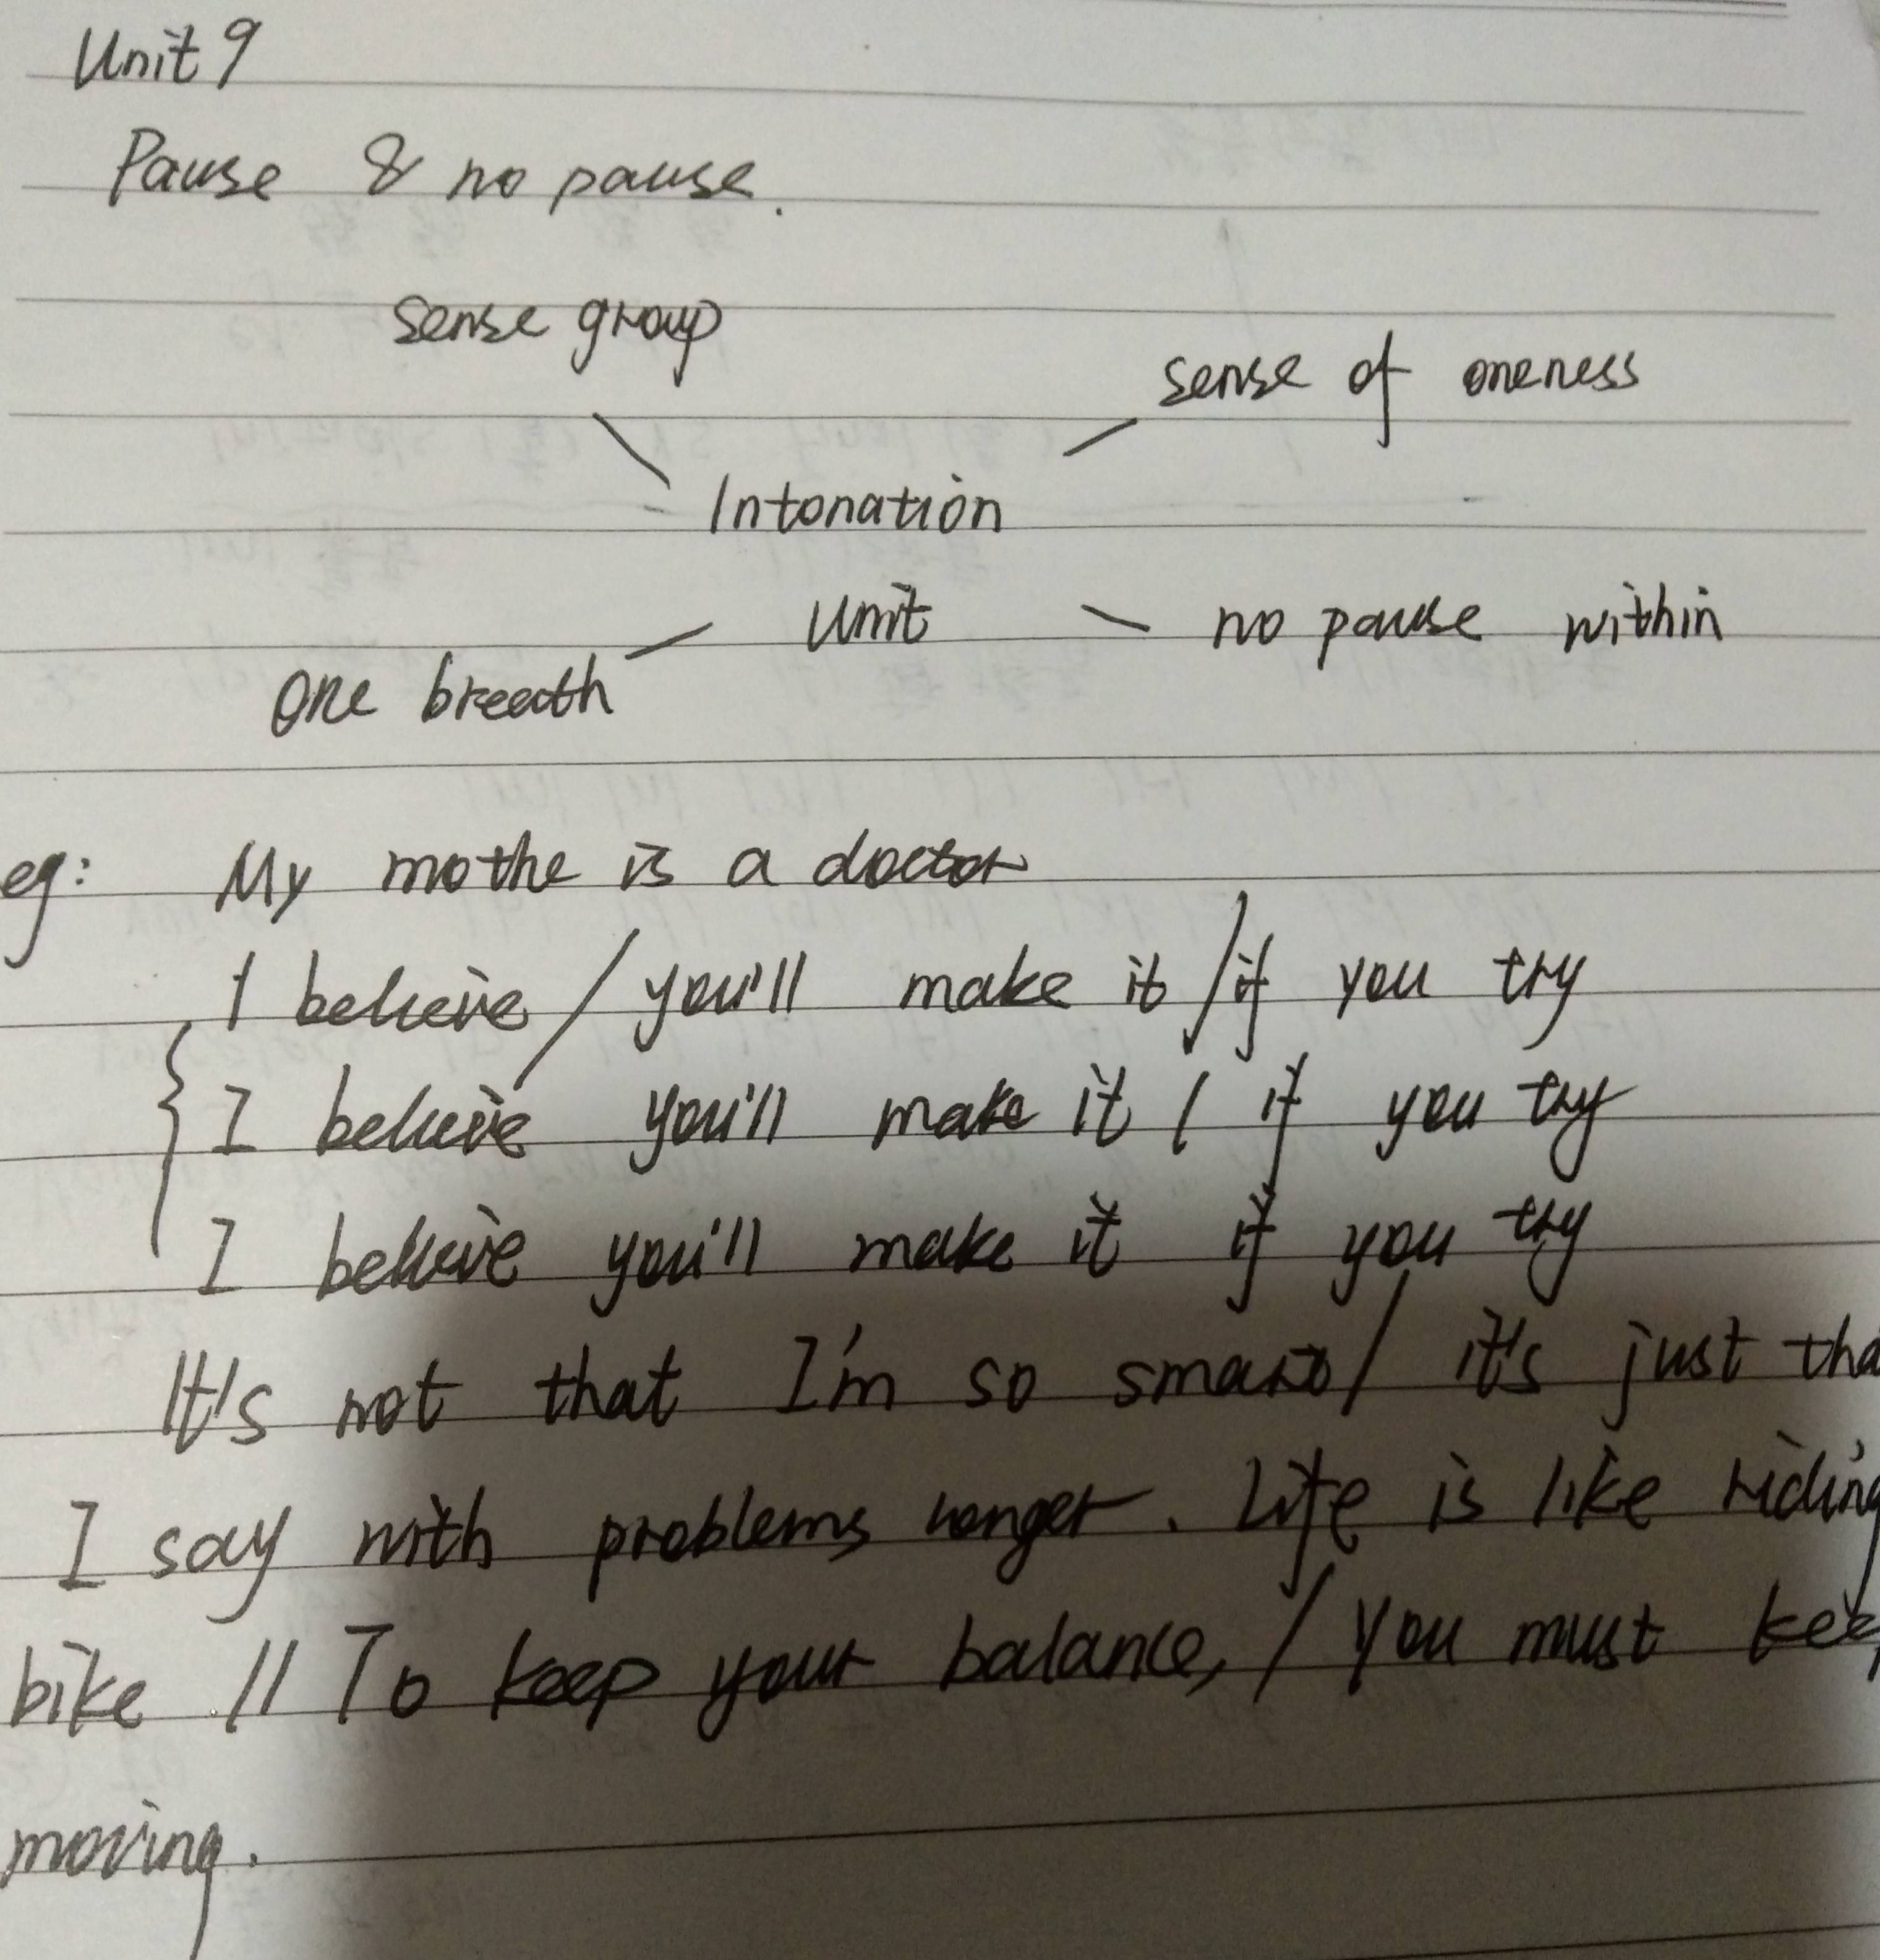 Unit 9
Pause & no pause.
sense group
sense of oneness
Intonation
Unit
no pause within
One breath
eg: My mothe is a doctor
I believe / you'll make it / if you try
I believe you'll make it / if you try
I believe you'll make it if you try
It's not that I'm so smart / it's just tha
I say with problems longer. Life is like riding
bike // To keep your balance, / you must kee
moving.